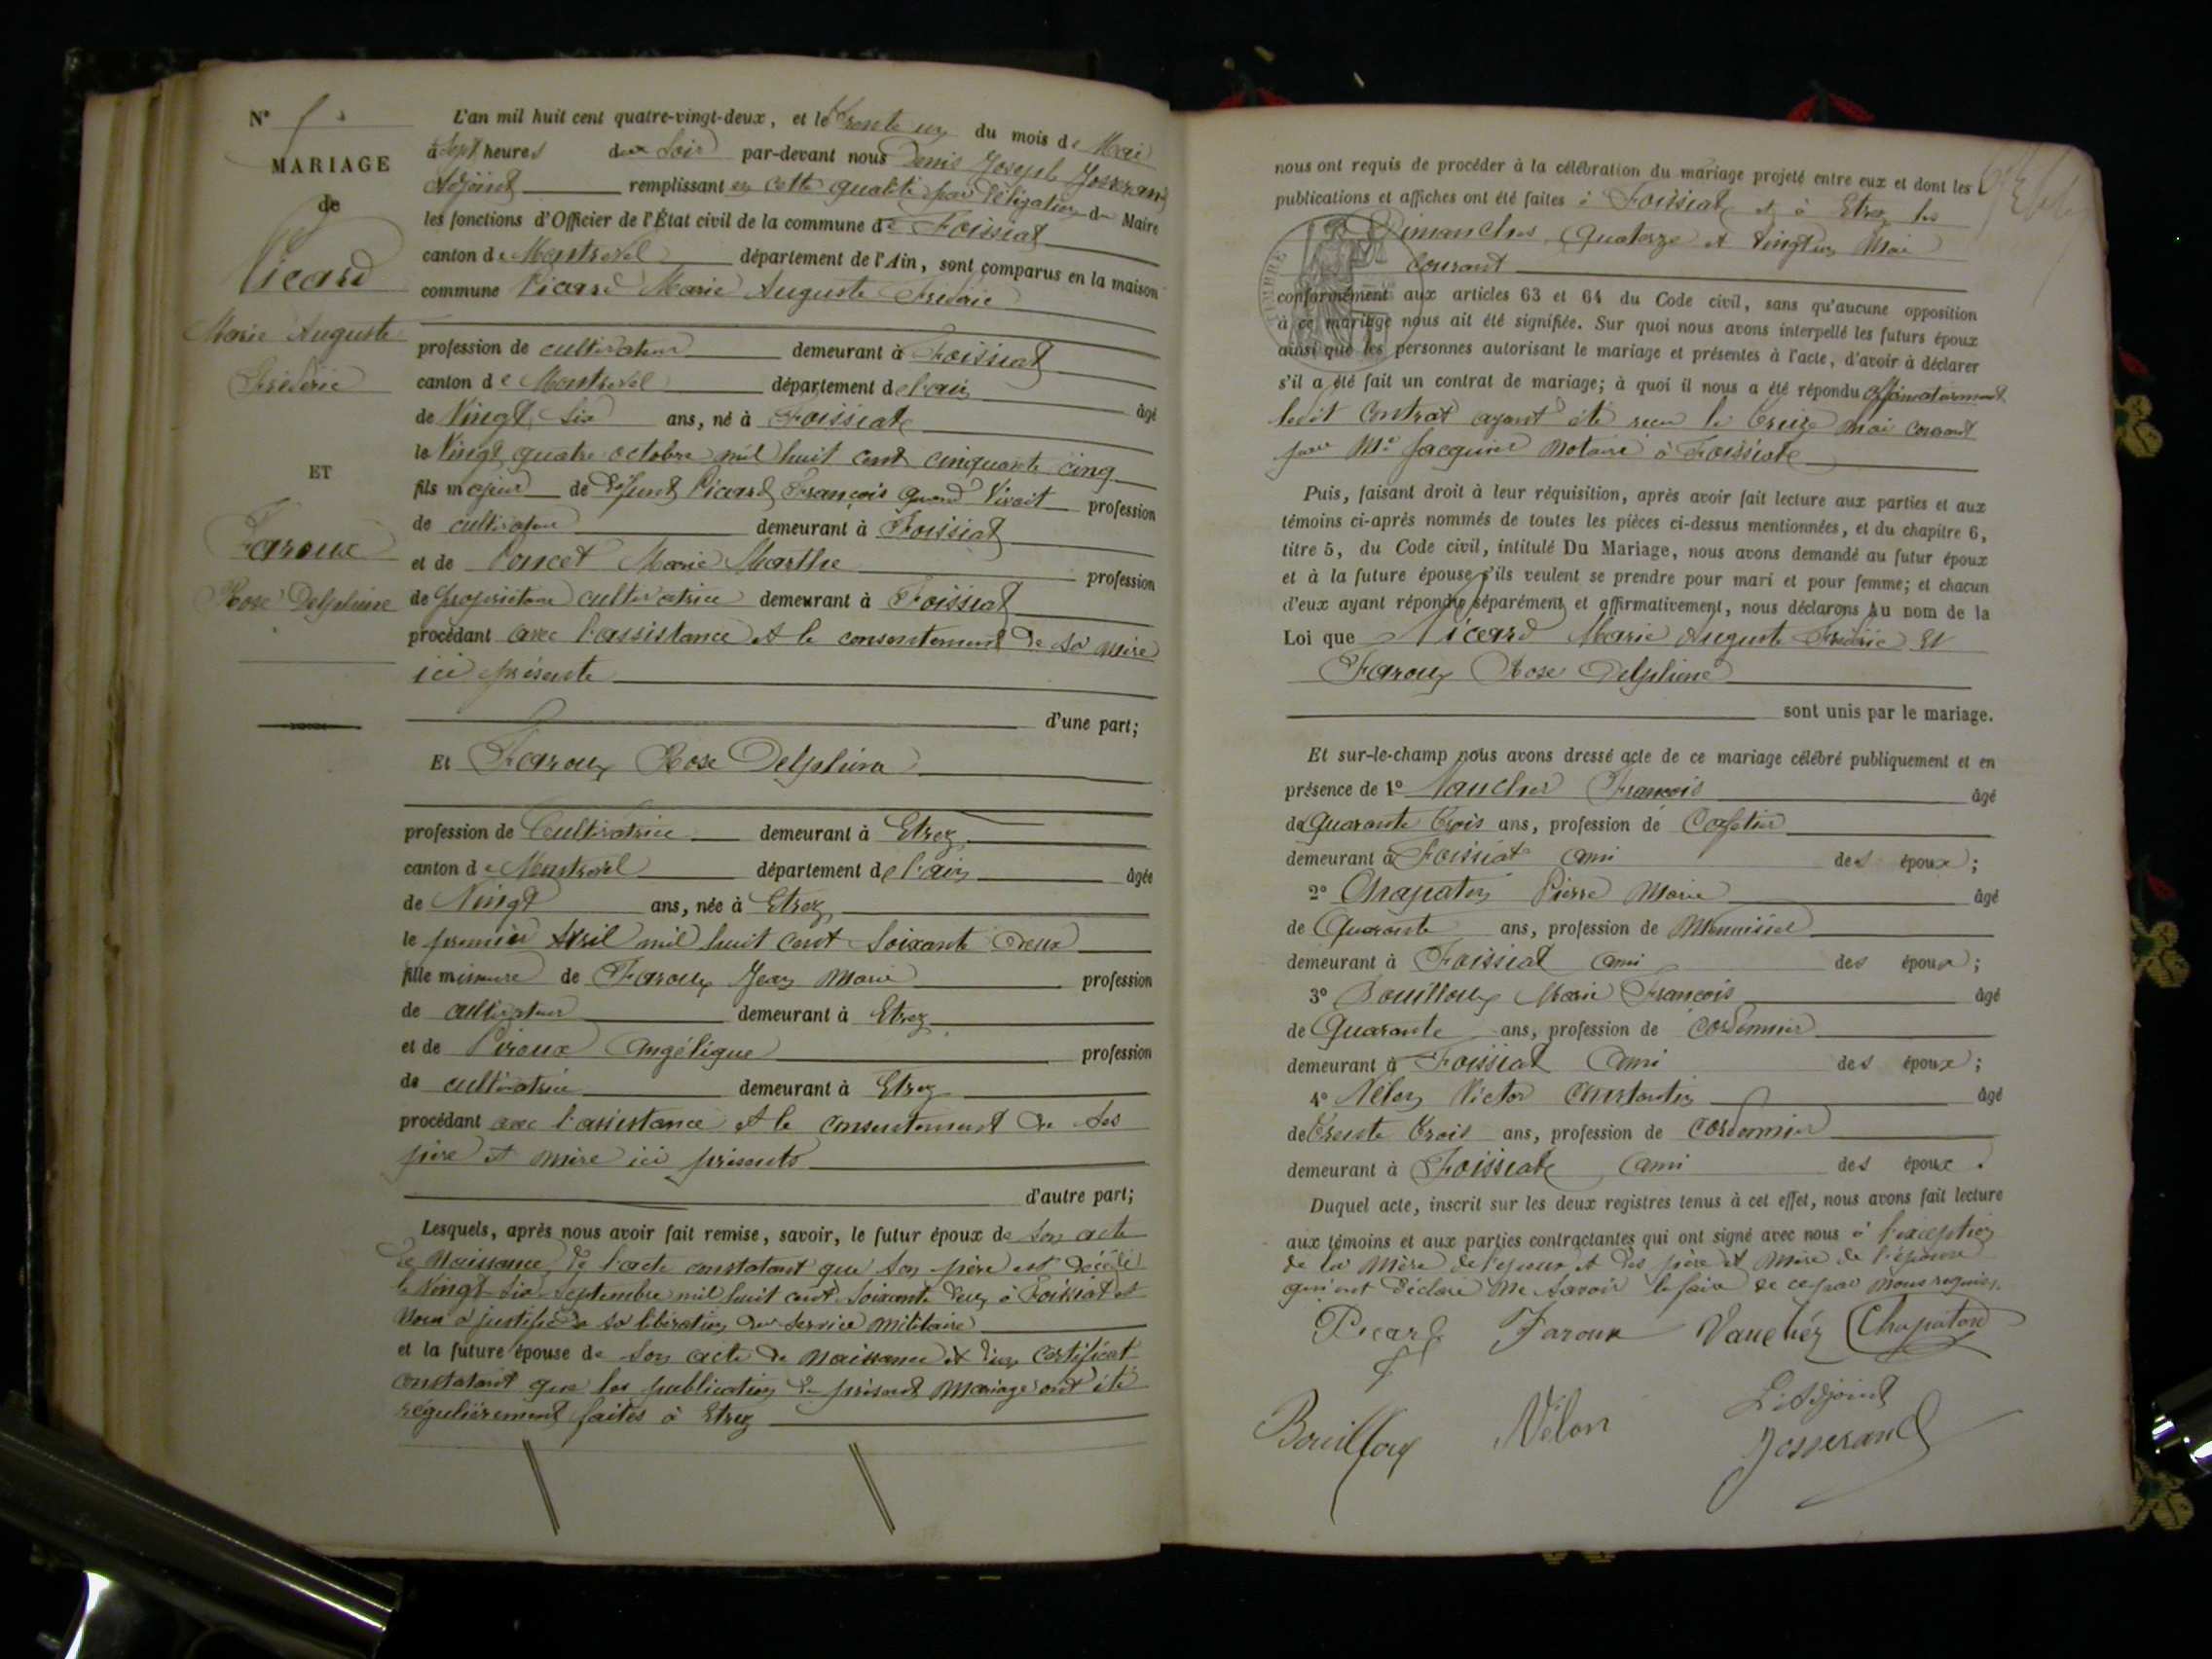 N°
MARIAGE
de
Picard
Marie Auguste
Fréderic
ET
Faroux
Rose Delphine
L'an mil huit cent quatre-vingt-deux, et le trente un du mois de Mai
à Sept heures du Soir par-devant nous Denis Joseph Josserand
Adjoint remplissant en cette qualité par délégation du Maire
les fonctions d'Officier de l'État civil de la commune de Foissiat
canton de Montrevel département de l'Ain, sont comparus en la maison
commune Picard Marie Auguste Fréderic
profession de cultivateur demeurant à Foissiat
canton de Montrevel département de l'ain âgé
de Vingt Six ans, né à Foissiat
le Vingt quatre octobre mil huit cent cinquante cinq
fils majeur de défunt Picard François quand Vivait profession
de cultivateur demeurant à Foissiat
et de Poncet Marie Marthe profession
de propriétaire cultivatrice demeurant à Foissiat
procédant avec l'assistance et le consentement de sa mère
ici présente
d'une part;
Et Faroux Rose Delphine
profession de Cultivatrice demeurant à Etrez
canton de Montrevel département de l'ain âgée
de Vingt ans, née à Etrez
le premier Avril mil huit cent Soixante Deux
fille mineure de Faroux Jean Marie profession
de cultivateur demeurant à Etrez
et de Piroux Angélique profession
de cultivatrice demeurant à Etrez
procédant avec l'assistance et le consentement de ses
père et mère ici présents
d'autre part;
Lesquels, après nous avoir fait remise, savoir, le futur époux de son acte
de Naissance, de l'acte constatant que son père est décédé
le Vingt Six Septembre mil huit cent Soixante Deux à Foissiat et
Nous a justifié de sa libération du service militaire
et la future épouse de son acte de Naissance et d'un certificat
constatant que les publications du présent Mariage ont été
régulièrement faites à Etrez
nous ont requis de procéder à la célébration du mariage projeté entre eux et dont les
publications et affiches ont été faites à Foissiat et à Etrez les
Dimanches Quatorze et Vingt un Mai
courant
TIMBRE
conformément aux articles 63 et 64 du Code civil, sans qu'aucune opposition
à ce mariage nous ait été signifiée. Sur quoi nous avons interpellé les futurs époux
ainsi que les personnes autorisant le mariage et présentes à l'acte, d'avoir à déclarer
s'il a été fait un contrat de mariage; à quoi il nous a été répondu affirmativement
ledit Contrat ayant été reçu le treize mai courant
par Me Jacquier Notaire à Foissiat
Puis, faisant droit à leur réquisition, après avoir fait lecture aux parties et aux
témoins ci-après nommés de toutes les pièces ci-dessus mentionnées, et du chapitre 6,
titre 5, du Code civil, intitulé Du Mariage, nous avons demandé au futur époux
et à la future épouse s'ils veulent se prendre pour mari et pour femme; et chacun
d'eux ayant répondu séparément et affirmativement, nous déclarons au nom de la
Loi que Picard Marie Auguste Fréderic Et
Faroux Rose Delphine
sont unis par le mariage.
Et sur-le-champ nous avons dressé acte de ce mariage célébré publiquement et en
présence de 1° Vaucher François âgé
de Quarante trois ans, profession de Cafetier
demeurant à Foissiat ami des époux;
2° Chapaton Pierre Marie âgé
de Quarante ans, profession de Menuisier
demeurant à Foissiat ami des époux;
3° Bouilloux Marie François âgé
de Quarante ans, profession de Cordonnier
demeurant à Foissiat ami des époux;
4° Vélon Victor Constantin âgé
de trente trois ans, profession de Cordonnier
demeurant à Foissiat ami des époux.
Duquel acte, inscrit sur les deux registres tenus à cet effet, nous avons fait lecture
aux témoins et aux parties contractantes qui ont signé avec nous à l'exception
de la Mère de l'époux et des père et Mère de l'épouse
qui ont déclaré ne savoir le faire de ce par nous requis.
Picard Faroux Vaucher Chapaton
F
Bouilloux Vélon L'Adjoint
Josserand